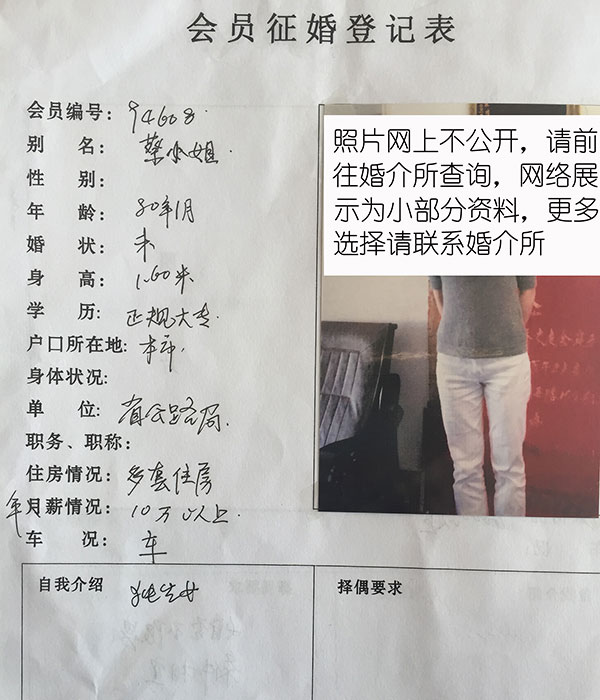 会员征婚登记表
会员编号: 94608.
别 名: 蔡小姐.
性 别:
年 龄: 80年1月
婚 状: 未
身 高: 1.60米
学 历: 正规大专.
户口所在地: 本市.
身体状况:
单 位: 省公路局.
职务、职称:
住房情况: 多套住房
年 月薪情况: 10万以上.
车 况: 车
自我介绍
择偶要求
照片网上不公开，请前
往婚介所查询，网络展
示为小部分资料，更多
选择请联系婚介所